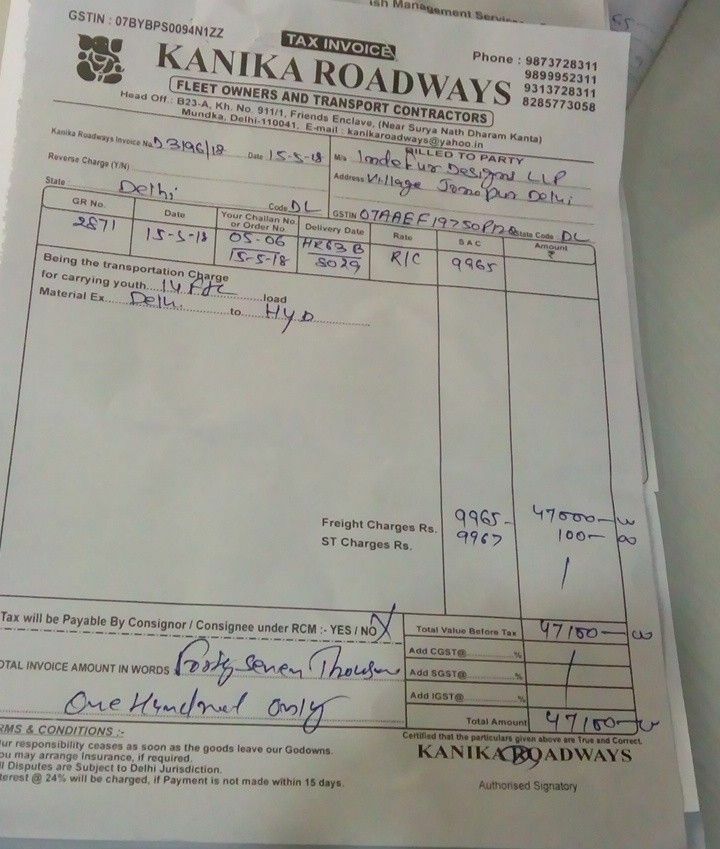 ish Management Services
GSTIN : 07BYBPS0094N1ZZ
TAX INVOICE
Phone : 9873728311
9899952311
9313728311
8285773058
KANIKA ROADWAYS
FLEET OWNERS AND TRANSPORT CONTRACTORS
Head Off.: B23-A, Kh. No. 911/1, Friends Enclave, (Near Surya Nath Dharam Kanta)
Mundka, Delhi-110041, E-mail : kanikaroadways@yahoo.in
Kanika Roadways Invoice No. D3196/18 Date 15-5-18
Reverse Charge (Y/N)
State Delhi Code DL
BILLED TO PARTY
M/s Designs LLP
Address Village Jonapur Delhi
GSTIN State Code DL
GR No. Date Your Challan No. or Order No. Delivery Date Rate SAC Amount ₹
2871 15-5-18 05-06 HR63B R/C 9965
15-5-18 8029
Being the transportation Charge
for carrying youth load
Material Ex. Delhi to HYD
Freight Charges Rs. 9965- 47000-00
ST Charges Rs. 9967 100-00
Tax will be Payable By Consignor / Consignee under RCM :- YES / NO X
Total Value Before Tax 47100-00
Add CGST@ %
Add SGST@ %
Add IGST@ %
Total Amount 47100-00
OTAL INVOICE AMOUNT IN WORDS Forty Seven Thousand
One Hundred only
RMS & CONDITIONS :-
ur responsibility ceases as soon as the goods leave our Godowns.
ou may arrange Insurance, if required.
ll Disputes are Subject to Delhi Jurisdiction.
terest @ 24% will be charged, if Payment is not made within 15 days.
Certified that the particulars given above are True and Correct.
KANIKA ROADWAYS
Authorised Signatory